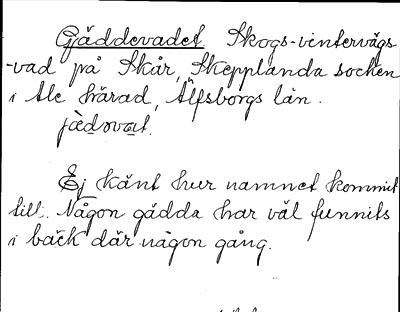 Gäddevadet Skogs-vintervägs
-vad på Skår, Skepplanda socken
i Ale härad, Älfsborgs län.
jɛ̀dəvat.
Ej känt hur namnet kommit
till. Någon gädda har väl funnits
i bäck där någon gång.